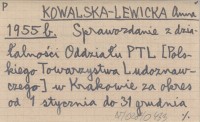 P
KOWALSKA-LEWICKA Anna
1955 b. Sprawozdanie z dzia-
łalności Oddziału PTL [Pols-
kiego Towarzystwa Ludoznaw-
czego] w Krakowie za okres
od 1 stycznia do 31 grudnia